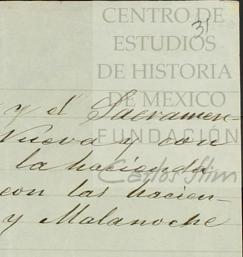 CENTRO DE
ESTUDIOS
DE HISTORIA
DE MEXICO
FUNDACIÓN
Carlos Slim
31
y el Sacramen-
Nueva y con
la hacienda
con las hacien-
y Malanoche